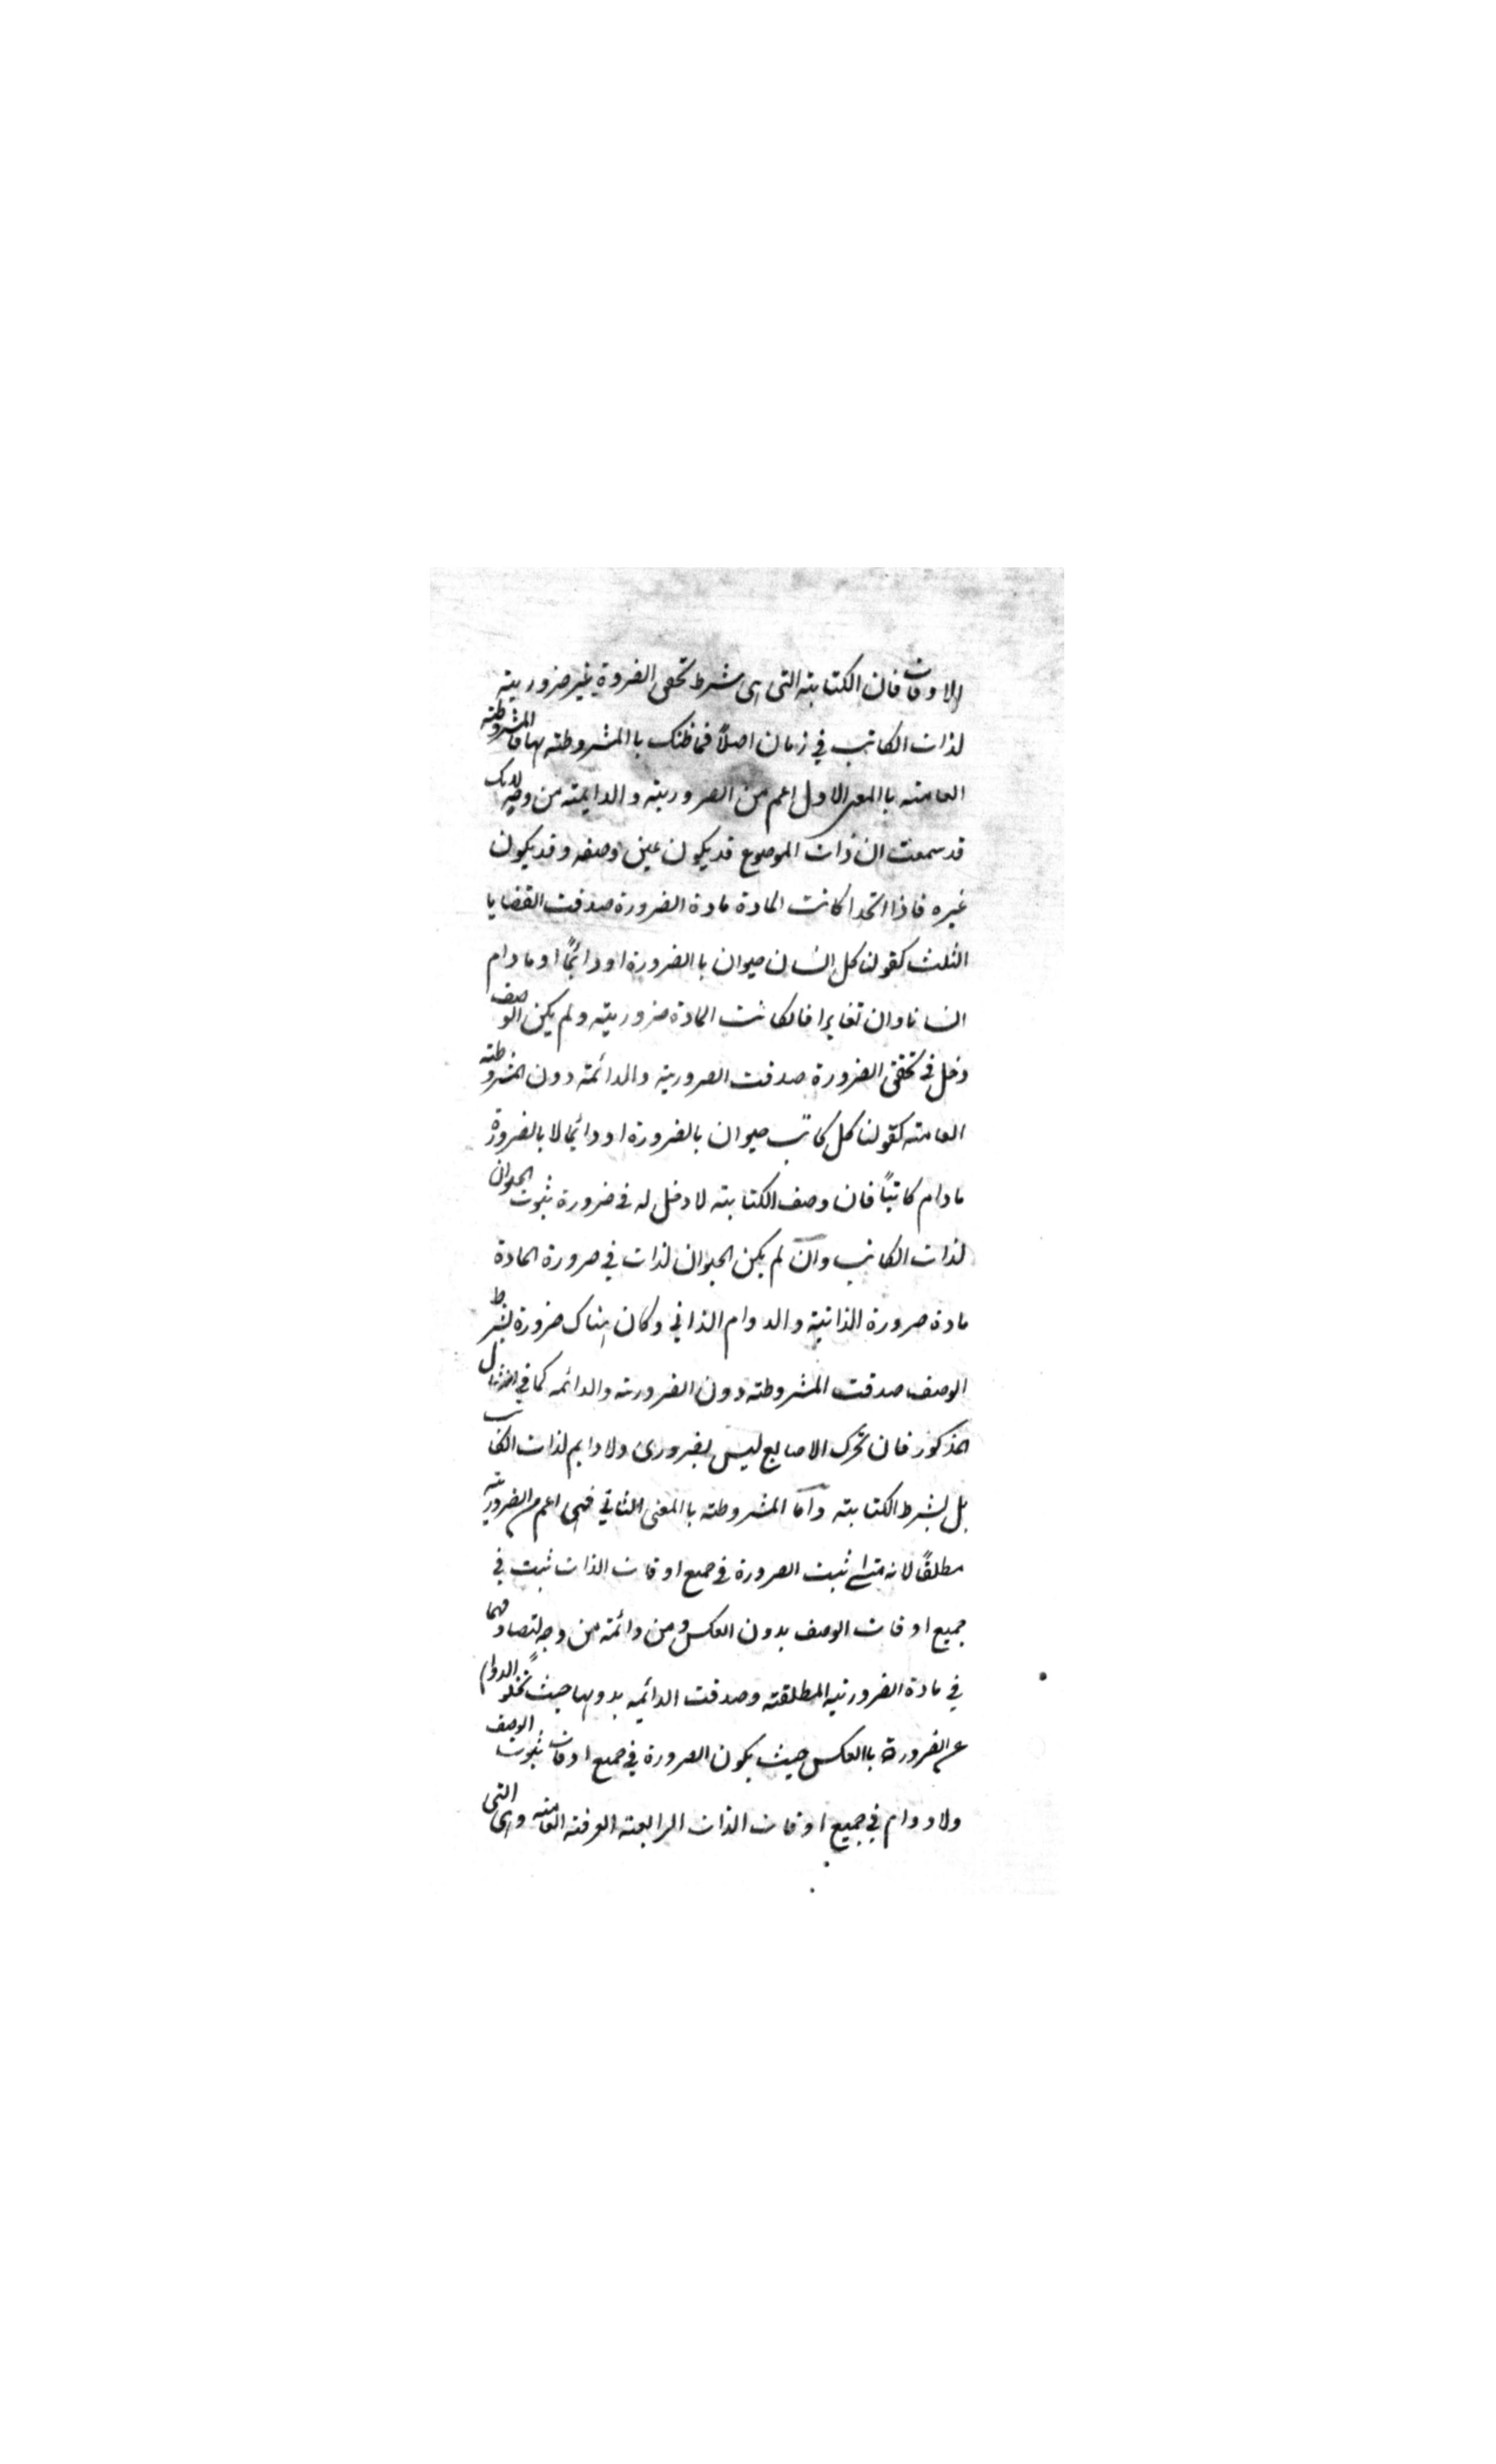 الاوقات فان الكتابته التى هى شرط تحقق الضروة غير ضروريته
لذات الكاتب في زمان اصلاً فما ظنك باالمشروطته بها فالمشروطته
العامته باالمعنى الاول اعم من الضروريته والدايمته من وجه لانك
قد سمعت ان ذات الموضوع قد يكون عين وصفه وقد يكون
غيره فاذا اتحدا كانت المادة مادة الضرورة صدقت القضايا
الثلث كقولنا كل انسان حيوان باالضرورة او دائمًا او مادام
انسانا وان تغايرا فان كانت المادة ضروريته ولم يكن الوصف
دخل في تحقق الضرورة صدقت الضروريته والدائمته دون المشروطته
العامته كقولنا كل كاتب حيوان بالضرورة او دائما لا بالضرورة
مادام كاتبًا فان وصف الكتابته لا دخل له في ضرورة ثبوت الحيوان
لذات الكاتب وان لم يكن الحيوان لذات في ضرورة المادة
مادة ضرورة الذاتيته والدوام الذاتي وكان هناك ضرورة بشرط
الوصف صدقت المشروطته دون الضروريته والدائمه كما في المثال
المذكور فان تحرك الاصابع ليس بضرورى ولا دايم لذات الكاتب
بل بشرط الكتابته واما المشروطته باالمعنى الثاني فهى اعم من الضروريته
مطلقًا لانه متى ثبت الضرورة في جميع اوقات الذات ثبت في
جميع اوقات الوصف بدون العكس ومن دائمته من وجه لتصادقهما
في مادة الضروريته المطلقته وصدقت الدائميه بدونها حيث تخلو الدوام
عن الضرورة باالعكس حيث يكون الضرورة في جميع اوقات ثبوت الوصف
ولا دوام في جميع اوقات الذات الرابعته العرفته العامته وهى التى